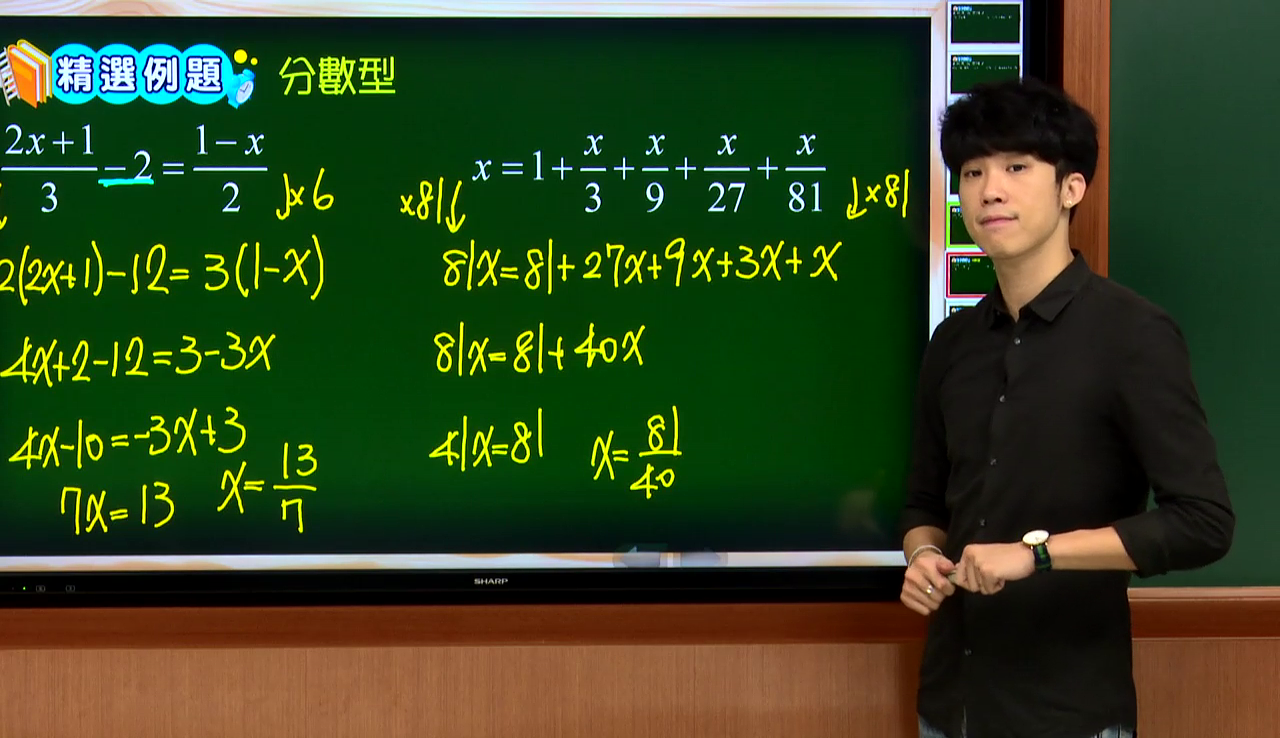 精選例題 分數型
(2x+1)/3 −2 = (1−x)/2
×6
2(2x+1)−12=3(1−x)
4x+2−12=3−3x
4x−10=−3x+3
7x=13 x=13/7
x=1+x/3+x/9+x/27+x/81
×81 ×81
81x=81+27x+9x+3x+x
81x=81+40x
41x=81 x=81/40
SHARP